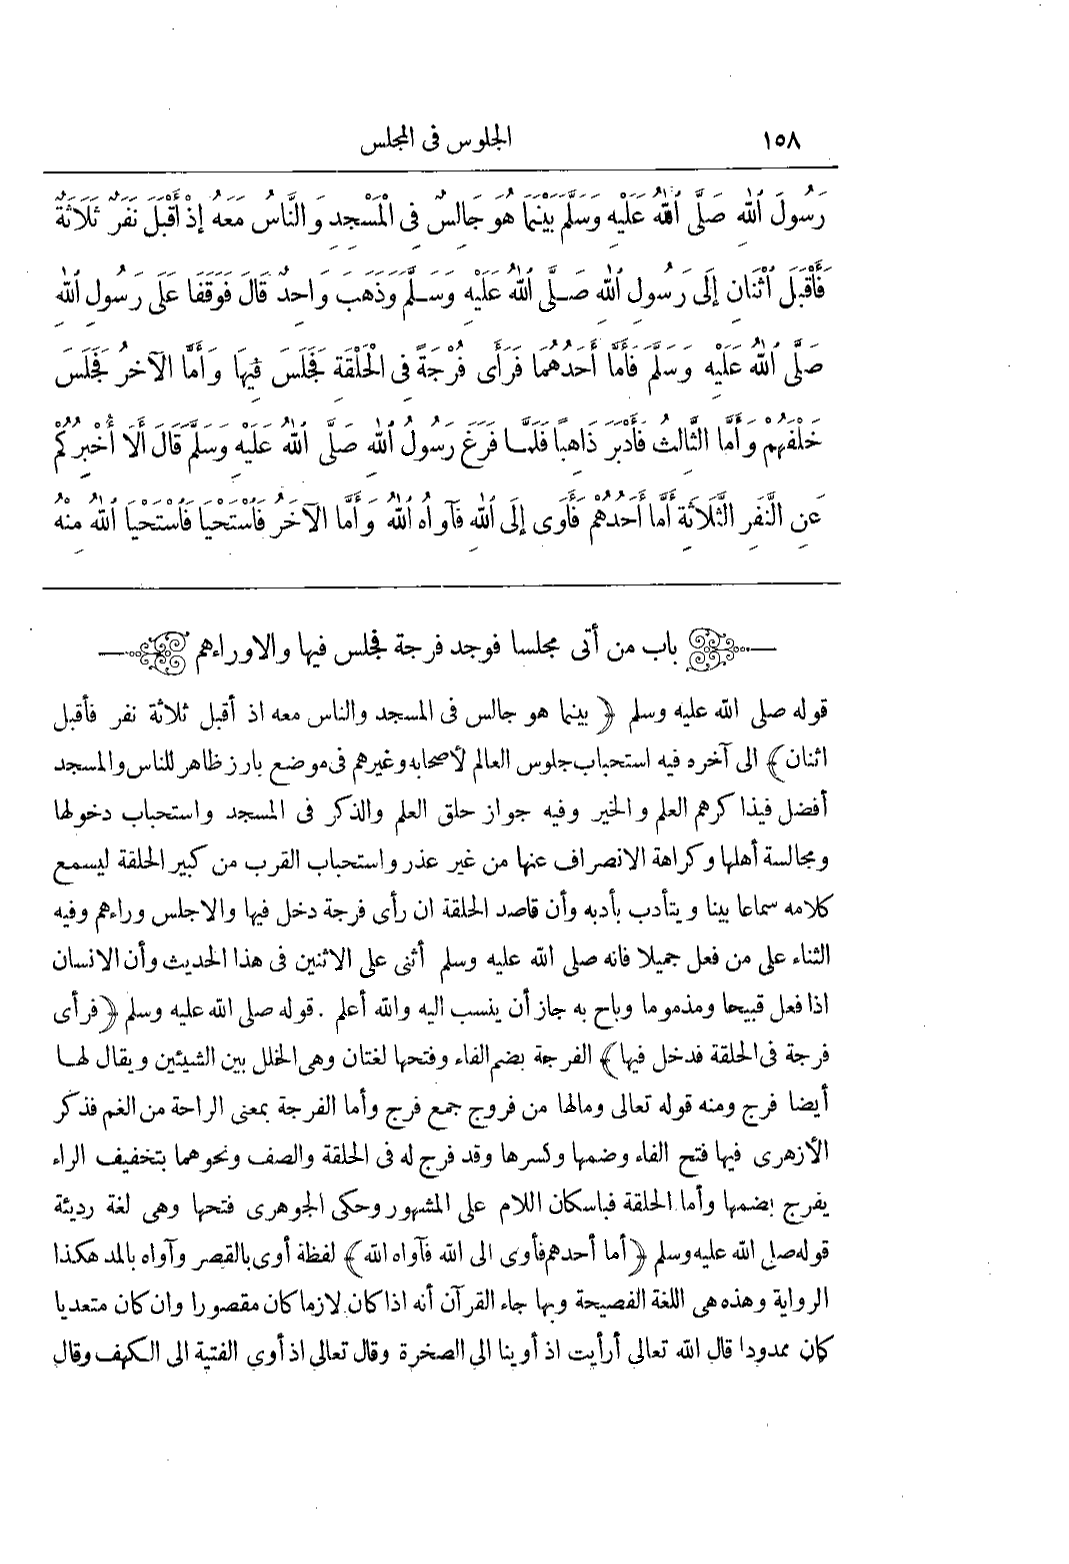 ١٥٨ الجلوس فى المجلس
رَسُولَ ٱللهِ صَلَّى ٱللهُ عَلَيْهِ وَسَلَّمَ بَيْنَمَا هُوَ جَالِسٌ فِى الْمَسْجِدِ وَالنَّاسُ مَعَهُ إِذْ أَقْبَلَ نَفَرٌ ثَلَاثَةٌ
فَأَقْبَلَ ٱثْنَانِ إِلَى رَسُولِ ٱللهِ صَلَّى ٱللهُ عَلَيْهِ وَسَلَّمَ وَذَهَبَ وَاحِدٌ قَالَ فَوَقَفَا عَلَى رَسُولِ ٱللهِ
صَلَّى ٱللهُ عَلَيْهِ وَسَلَّمَ فَأَمَّا أَحَدُهُمَا فَرَأَى فُرْجَةً فِى الْحَلْقَةِ فَجَلَسَ فِيهَا وَأَمَّا الْآخَرُ فَجَلَسَ
خَلْفَهُمْ وَأَمَّا الثَّالِثُ فَأَدْبَرَ ذَاهِبًا فَلَمَّا فَرَغَ رَسُولُ ٱللهِ صَلَّى ٱللهُ عَلَيْهِ وَسَلَّمَ قَالَ أَلَا أُخْبِرُكُمْ
عَنِ النَّفَرِ الثَّلَاثَةِ أَمَّا أَحَدُهُمْ فَأَوَى إِلَى ٱللهِ فَآوَاهُ ٱللهُ وَأَمَّا الْآخَرُ فَاسْتَحْيَا فَاسْتَحْيَا ٱللهُ مِنْهُ
باب من أتى مجلسا فوجد فرجة فجلس فيها والا وراءهم
قوله صلى الله عليه وسلم ﴿ بينما هو جالس فى المسجد والناس معه اذ أقبل ثلاثة نفر فأقبل
اثنان ﴾ الى آخره فيه استحباب جلوس العالم لأصحابه وغيرهم فى موضع بارز ظاهر للناس والمسجد
أفضل فيذاكرهم العلم والخير وفيه جواز حلق العلم والذكر فى المسجد واستحباب دخولها
ومجالسة أهلها وكراهة الانصراف عنها من غير عذر واستحباب القرب من كبير الحلقة ليسمع
كلامه سماعا بينا ويتأدب بأدبه وأن قاصد الحلقة ان رأى فرجة دخل فيها والا جلس وراءهم وفيه
الثناء على من فعل جميلا فانه صلى الله عليه وسلم أثنى على الاثنين فى هذا الحديث وأن الانسان
اذا فعل قبيحا ومذموما وباح به جاز أن ينسب اليه والله أعلم . قوله صلى الله عليه وسلم ﴿ فرأى
فرجة فى الحلقة فدخل فيها ﴾ الفرجة بضم الفاء وفتحها لغتان وهى الخلل بين الشيئين ويقال لهـا
أيضا فرج ومنه قوله تعالى ومالها من فروج جمع فرج وأما الفرجة بمعنى الراحة من الغم فذكر
الأزهرى فيها فتح الفاء وضمها وكسرها وقد فرج له فى الحلقة والصف ونحوهما بتخفيف الراء
يفرج بضمها وأما الحلقة فباسكان اللام على المشهور وحكى الجوهرى فتحها وهى لغة رديئة
قوله صلى الله عليه وسلم ﴿ أما أحدهم فأوى الى الله فآواه الله ﴾ لفظة أوى بالقصر وآواه بالمد هكذا
الرواية وهذه هى اللغة الفصيحة وبها جاء القرآن أنه اذا كان لازما كان مقصورا وان كان متعديا
كان ممدودا قال الله تعالى أرأيت اذ أوينا الى الصخرة وقال تعالى اذ أوى الفتية الى الكهف وقال